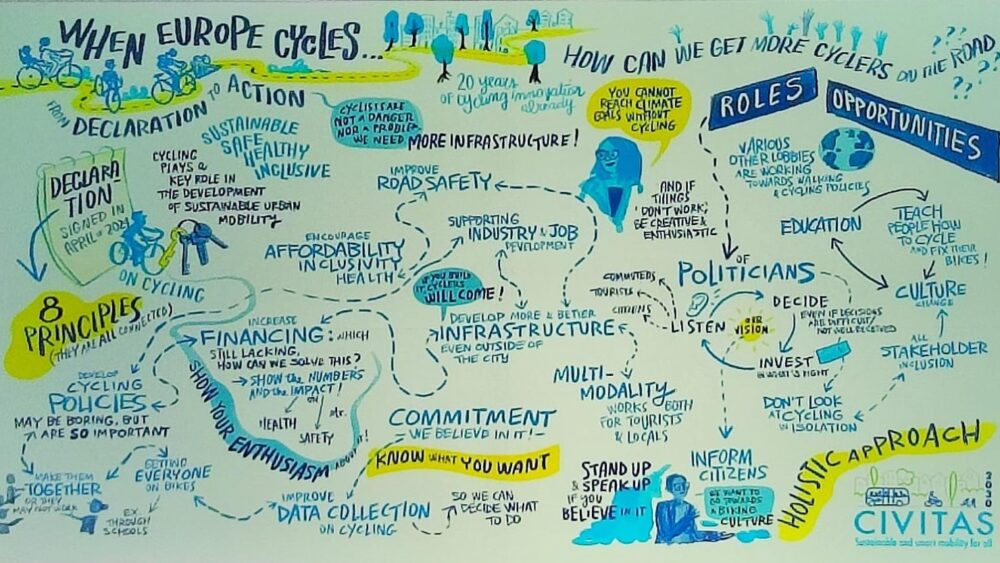 WHEN EUROPE CYCLES...
FROM DECLARATION TO ACTION
20 years
of cycling innovation
already
HOW CAN WE GET MORE CYCLERS ON THE ROAD
??? ? ? ?
CYCLISTS ARE
NOT A DANGER
NOR A PROBLEM
WE NEED
MORE INFRASTRUCTURE!
SUSTAINABLE
SAFE
HEALTHY
INCLUSIVE
CYCLING
PLAYS a
KEY ROLE IN
THE DEVELOPMENT
OF SUSTAINABLE URBAN
MOBILITY
DECLARA-
TION
SIGNED IN
APRIL
ON CYCLING
8
PRINCIPLES
(THEY ARE ALL CONNECTED)
IMPROVE
ROAD SAFETY
SUPPORTING
INDUSTRY & JOB
DEVELOPMENT
ENCOURAGE
AFFORDABILITY
INCLUSIVITY
HEALTH
IF YOU BUILD
IT, CYCLERS
WILL COME!
DEVELOP MORE & BETTER
INFRASTRUCTURE
EVEN OUTSIDE OF
THE CITY
INCREASE
FINANCING: WHICH
STILL LACKING.
HOW CAN WE SOLVE THIS?
→ SHOW the NUMBERS
AND the IMPACT!
ON
HEALTH
SAFETY
etc.
SHOW YOUR ENTHUSIASM ABOUT IT!
DEVELOP
CYCLING
POLICIES
MAY BE BORING, BUT
ARE SO IMPORTANT
MAKE THEM
TOGETHER
OR THEY
MAY NOT WORK
GETTING
EVERYONE
ON BIKES
EX.
THROUGH
SCHOOLS
IMPROVE
DATA COLLECTION
ON CYCLING
SO WE CAN
DECIDE WHAT
TO DO
COMMITMENT
– WE BELIEVE IN IT! –
KNOW WHAT YOU WANT
MULTI-
MODALITY
WORKS BOTH
FOR TOURISTS
& LOCALS
YOU CANNOT
REACH CLIMATE
GOALS WITHOUT
CYCLING
AND IF
THINGS
'DON'T WORK',
BE CREATIVE &
ENTHUSIASTIC
ROLES
OF
POLITICIANS
COMMUTERS
TOURISTS
CITIZENS
LISTEN
OUR
VISION
DECIDE
EVEN IF DECISIONS
ARE DIFFICULT/
NOT WELL RECEIVED
INVEST
IN WHAT'S RIGHT
DON'T LOOK
AT CYCLING
IN ISOLATION
INFORM
CITIZENS
WE WANT TO
GO TOWARDS
A BIKING
CULTURE
STAND UP
& SPEAK UP
IF YOU
BELIEVE IN IT
OPPORTUNITIES
VARIOUS
OTHER LOBBIES
ARE WORKING
TOWARDS WALKING
& CYCLING POLICIES
EDUCATION
TEACH
PEOPLE HOW
TO CYCLE
AND FIX THEIR
BIKES!
CULTURE
CHANGE
ALL
STAKEHOLDER
INCLUSION
HOLISTIC APPROACH
2030
CIVITAS
Sustainable and smart mobility for all